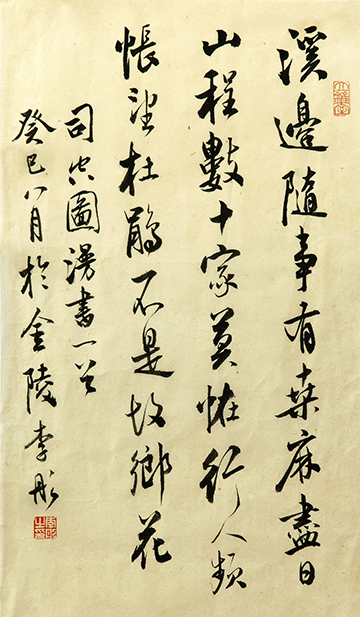 溪邊隨事有桒麻盡日
山程數十家莫恠行人頻
悵望杜鵑不是故鄉花
司空圖漫書一首
癸巳八月於金陵李彤